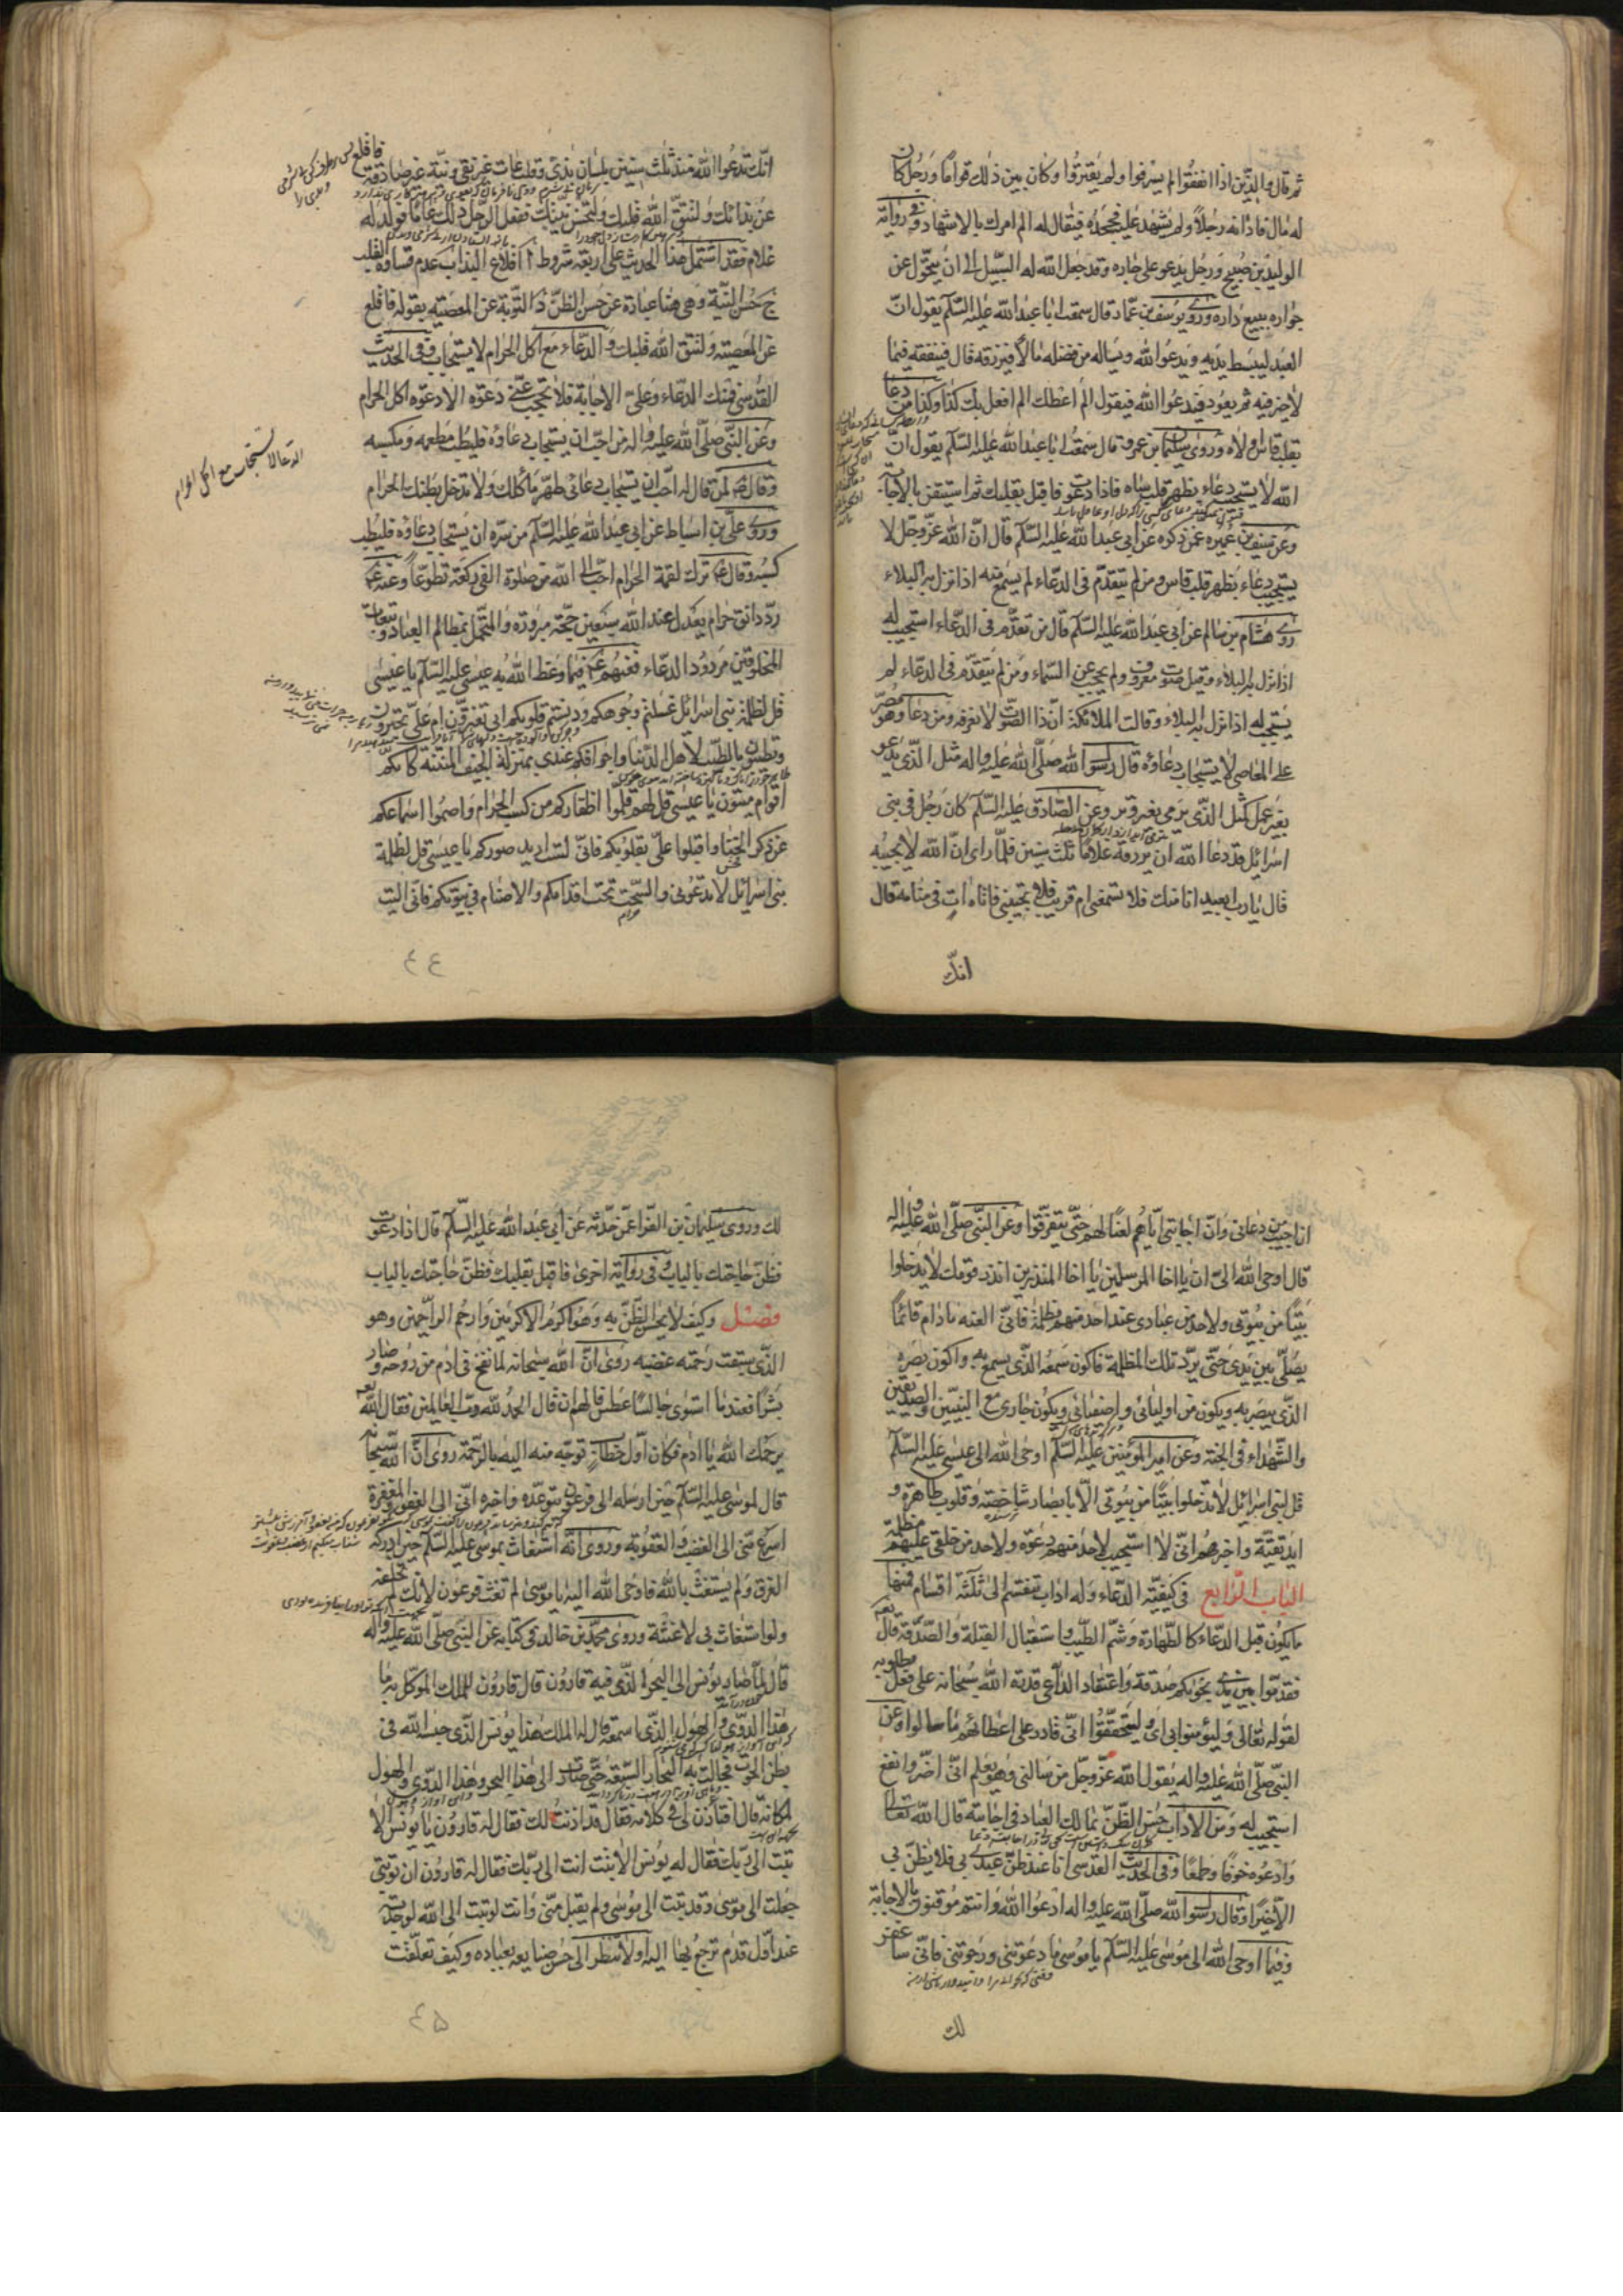 ثم قال والذين اذا انفقوا لم يسرفوا ولم يقتروا وكان بين ذلك قواما ورجل كان
له مال فادانه رجلاً ولم يشهد عليه فجحده فيقال له الم امرك بالاشهاد وفي رواية
الوليد بن صبيح ورجل يدعو على جاره وقد جعل الله له السبيل الى ان يتحول عن
جواره ببيع داره وروى يونس بن عمار قال سمعت ابا عبد الله عليه السلم يقول ان
العبد ليبسط يديه ويدعو الله ويساله من فضله مالاً فيرزقه قال فينفقه فيما
لاخير فيه ثم يعود فيدعوا الله فيقول الم اعطك الم افعل بك كذا وكذا من دعا
بقلب قاس ولاه وروى سليمان بن عمرو قال سمعت ابا عبد الله عليه السلم يقول ان
الله لا يستجيب دعاء بظهر قلب ساه فاذا دعوت فاقبل بقلبك ثم استيقن بالاجابة
وعن سيف بن عميره عمن ذكره عن ابي عبد الله عليه السلم قال ان الله عز وجل لا
يستجيب دعاء بظهر قلب قاس ومن لم يتقدم في الدعاء لم يسمع منه اذا نزل به البلاء
روى هشام بن سالم عن ابي عبد الله عليه السلم قال من تقدم في الدعاء استجيب له
اذا نزل به البلاء وقيل صوت معروف ولم يحجب عن السماء ومن لم يتقدم في الدعاء لم
يستجب له اذا نزل به البلاء وقالت الملائكة ان ذا الصوت لا نعرفه ومن دعا وهو مصر
على المعاصي لا يستجاب دعاؤه قال رسول الله صلى الله عليه واله مثل الذي يدعو
بغير عمل كمثل الذي يرمي بغير وتر وعن الصادق عليه السلم كان رجل في بني
اسرائيل قد دعا الله ان يرزقه غلاماً ثلث سنين فلما راى ان الله لا يجيبه
قال يا رب ابعيد انا منك فلا تسمعني ام قريب فلا تجيبني فاتاه ات في منامه قال
انك
انك تدعوا الله منذ ثلث سنين بلسان بذي وقلب عات غير نقي ونية غير صادقة فاقلع
عن بذائك ولتتق الله قلبك ولتحسن نيتك ففعل الرجل ذلك عاماً فولد له
غلام فقد اشتمل هذا الحديث على اربعة شروط ا اقلاع البذا ب عدم قساوة القلب
ج حسن النية وهي هنا عبارة عن حسن الظن د التوبة عن المعصية بقوله فاقلع
عن المعصية ولتتق الله قلبك والدعاء مع اكل الحرام لا يستجاب وفي الحديث
القدسي فمنك الدعاء وعلي الاجابة فلا تحجب عني دعوة الا دعوة اكل الحرام
وعن النبي صلى الله عليه واله من احب ان يستجاب دعاؤه فليطب مطعمه ومكسبه
وقال لمن قال له احب ان يستجاب دعائي طهر ماكلك ولا تدخل بطنك الحرام
الدعا لا يستجاب مع اكل الحرام
وروى علي بن اسباط عن ابي عبد الله عليه السلم من سره ان يستجاب دعاؤه فليطيب
كسبه وقال ترك لقمة الحرام احب الى الله من صلوة الفي ركعة تطوعاً وعنه
رد دانق حرام يعدل عند الله سبعين حجة مبرورة والمتحمل بمظالم العباد وتبعات
المخلوقين مردود الدعاء فعنهم فيما وعظ الله به عيسى عليه السلم يا عيسى
قل لظلمة بني اسرائل غسلتم وجوهكم ودنستم قلوبكم ابي تغترون ام علي تجترون
وتطيبون بالطيب لاهل الدنيا واجوافكم عندي بمنزلة الجيف المنتنة كانكم
اقوام ميتون يا عيسى قل لهم قلموا اظفاركم من كسب الحرام واصموا اسماعكم
عن ذكر الخنا واقبلوا علي بقلوبكم فاني لست اريد صوركم يا عيسى قل لظلمة
بني اسرائل لا تدعوني والسحت تحت اقدامكم والاصنام في بيوتكم فاني اليت
حرام
٤٤
انا اجيب من دعاني وان اجابتي اياهم لعنا لهم حتى يتفرقوا وعن النبي صلى الله عليه واله
قال اوحى الله الي ان يا اخا المرسلين يا اخا المنذرين انذر قومك لا يدخلوا
بيتاً من بيوتي ولاحد من عبادي عند احد منهم مظلمة فاني العنه ما دام قائماً
يصلي بين يدي حتى يرد تلك المظلمة فاكون سمعه الذي يسمع به واكون بصره
الذي يبصر به ويكون من اوليائي واصفيائي ويكون جاري مع النبيين والصديقين
والشهداء في الجنة وعن امير المؤمنين عليه السلم اوحى الله الى عيسى عليه السلم
قل لبني اسرائيل لا تدخلوا بيتاً من بيوتي الا بابصار شاخصة وقلوب طاهرة و
ايد نقية واخبرهم اني لا استجيب لاحد منهم دعوة ولاحد من خلقي عليهم مظلمة
الباب الرابع في كيفية الدعاء وله اداب تنقسم الى ثلثة اقسام فمنها
ما يكون قبل الدعاء كالطهارة وشم الطيب واستقبال القبلة والصدقة قال تعالى
فقدموا بين يدي نجويكم صدقة واعتقاد الداعي قدرة الله سبحانه على فعل مطلوبه
لقوله تعالى وليؤمنوا بي اي وليتحققوا اني قادر على اعطائهم ما سالوا وعن
النبي صلى الله عليه واله يقول الله عز وجل من سالني وهو يعلم اني اضر وانفع
استجيب له ومن الاداب حسن الظن بمالك العباد في اجابته قال الله تعالى
وادعوه خوفاً وطمعاً وفي الحديث القدسي انا عند ظن عبدي بي فلا يظن بي
الا خيرا وقال رسول الله صلى الله عليه واله ادعوا الله وانتم موقنون بالاجابة
وفيما اوحى الله الى موسى عليه السلم يا موسى ما دعوتني ورجوتني فاني ساغفر
لك
لك وروى سليمان بن الفرا عن حدثه عن ابي عبد الله عليه السلم قال اذا دعوت
فظن حاجتك بالباب وفي رواية اخرى فاقبل بقلبك فظن حاجتك بالباب
فصل وكيف لا يحسن الظن به وهو اكرم الاكرمين وارحم الراحمين وهو
الذي سبقت رحمته غضبه روى ان الله سبحانه لما نفخ في ادم من روحه وصار
بشرا فعندما استوى جالسا عطس فالهم ان قال الحمد لله رب العالمين فقال الله تعالى
يرحمك الله يا ادم فكان اول خطاب توجه منه اليه بالرحمة روى ان الله سبحانه
قال لموسى عليه السلم حين ارسله الى فرعون يتوعده واخبره اني الى العفو والمغفرة
اسرع مني الى الغضب والعقوبة وروى انه استغاث بموسى عليه السلم حين ادركه
الغرق ولم يستغث بالله فاوحى الله اليه يا موسى لم تغث فرعون لانك لم تخلقه
ولو استغاث بي لاغثته وروى محمد بن خالد في كتابه عن النبي صلى الله عليه واله
قال لما صار يونس الى البحر الذي فيه قارون قال قارون للملك الموكل به ما
هذا الدوي والهول الذي اسمعه قال له الملك هذا يونس الذي حبسه الله في
بطن الحوت فجالت به البحار السبعة حتى صار الى هذا البحر وهذا الدوي والهول
لمكانه قال افتاذن لي في كلامه فقال قد اذنت لك فقال له قارون يا يونس الا
تبت الى ربك فقال له يونس الا تبت انت الى ربك فقال له قارون ان توبتي
جعلت الى موسى وقد تبت الى موسى ولم يقبل مني وانت لو تبت الى الله لوجدته
عند اول قدم ترجع بها اليه اولا تنظر الى حسن صنايعه بعباده وكيف تعلقت
٤٥